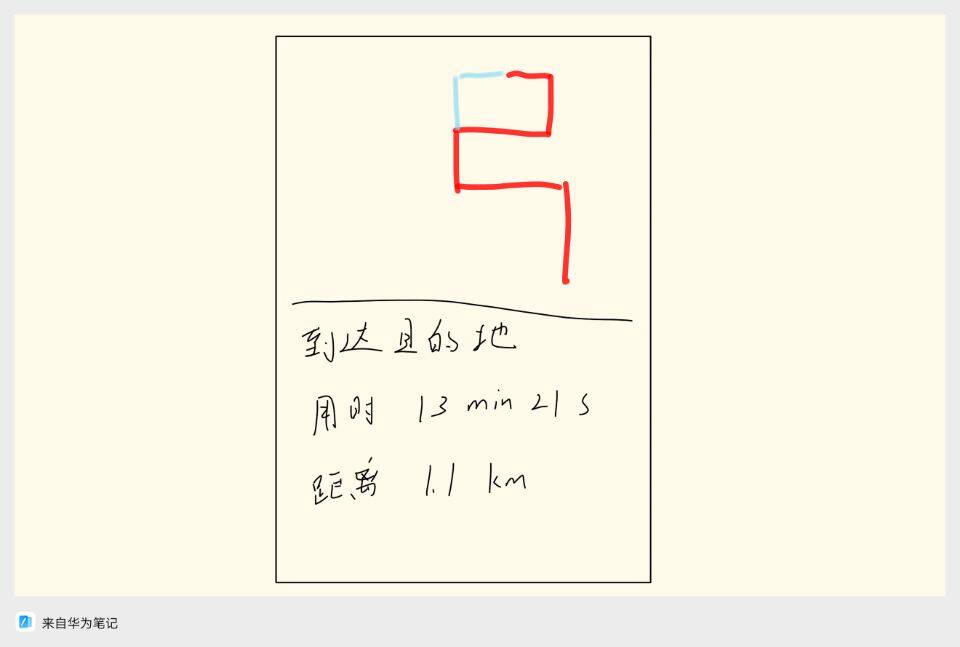 到达目的地
用时 13 min 21 s
距离 1.1 km
来自华为笔记